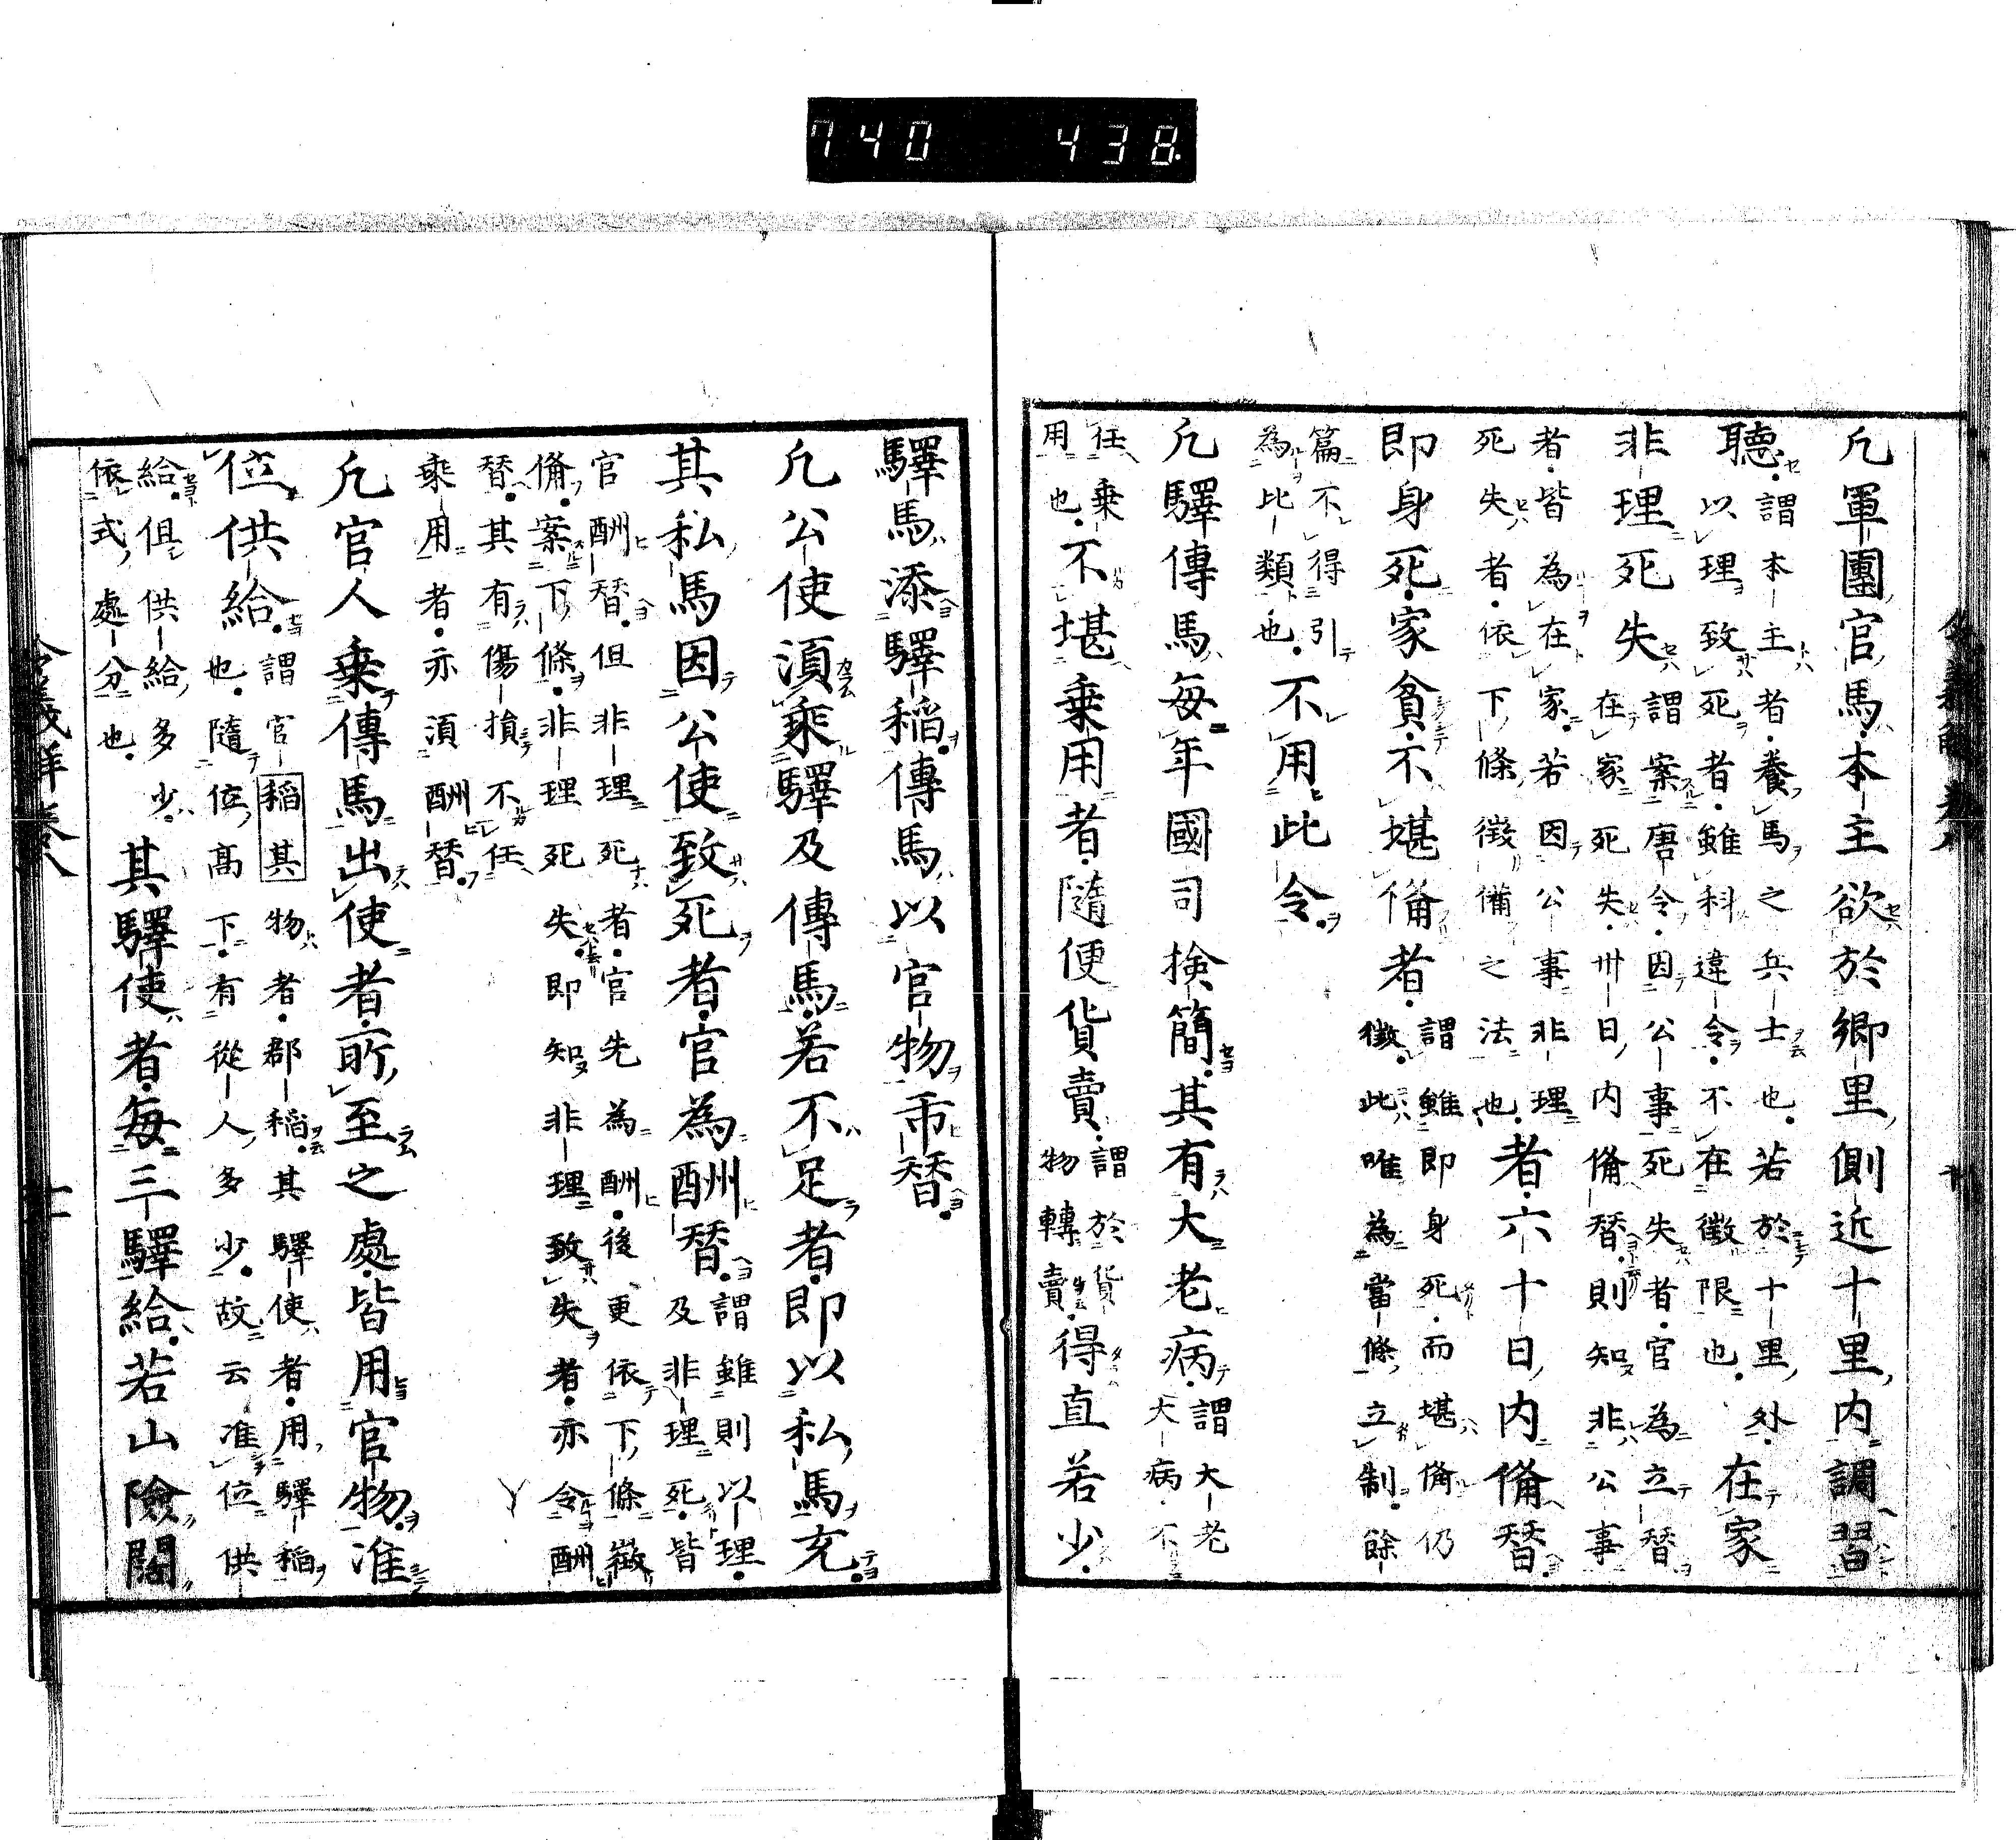 740 438
凢軍團官馬本主欲於鄉里側近十里内調習
聽
謂本主者養馬之兵士也若於十里外
以理致死者雖科違令不在徵限也
在家
非理死失
謂案唐令因公事死失者官為立替
在家死失卅日内俻替則知非公事
者皆為在家若因公事非理
死失者依下條徵備之法也
者六十日内俻替
即身死家貧不堪俻者
謂雖即身死而堪俻仍
徵此唯為當條立制餘
篇不得引
為比類也
不用此令
凢驛傳馬每年國司検簡其有大老病
謂大老
大病不
任乗
用也
不堪乗用者隨便貨賣
謂於貨
物轉賣
得直若少
驛馬添驛稲傳馬以官物市替
凢公使湏乘驛及傳馬若不足者即以私馬充
其私馬因公使致死者官為酬替
謂雖則以理
及非理死皆
官酬替但非理死者官先為酬後更依下條徴
俻案下條非理死失即知非理致失者亦令酬
替其有傷損不任
乘用者亦湏酬替
凢官人乗傳馬出使者所至之處皆用官物准
位供給
謂官稲其物者郡稲其驛使者用驛稲
也隨位高下有從人多少故云准位供
給但供給多少
依式處分也
其驛使者每三驛給若山險闊